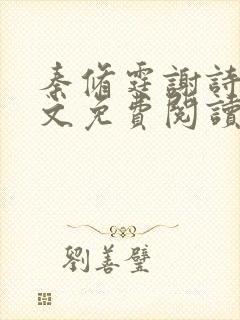 秦脩霆謝詩
文免費閱讀
劉善璧